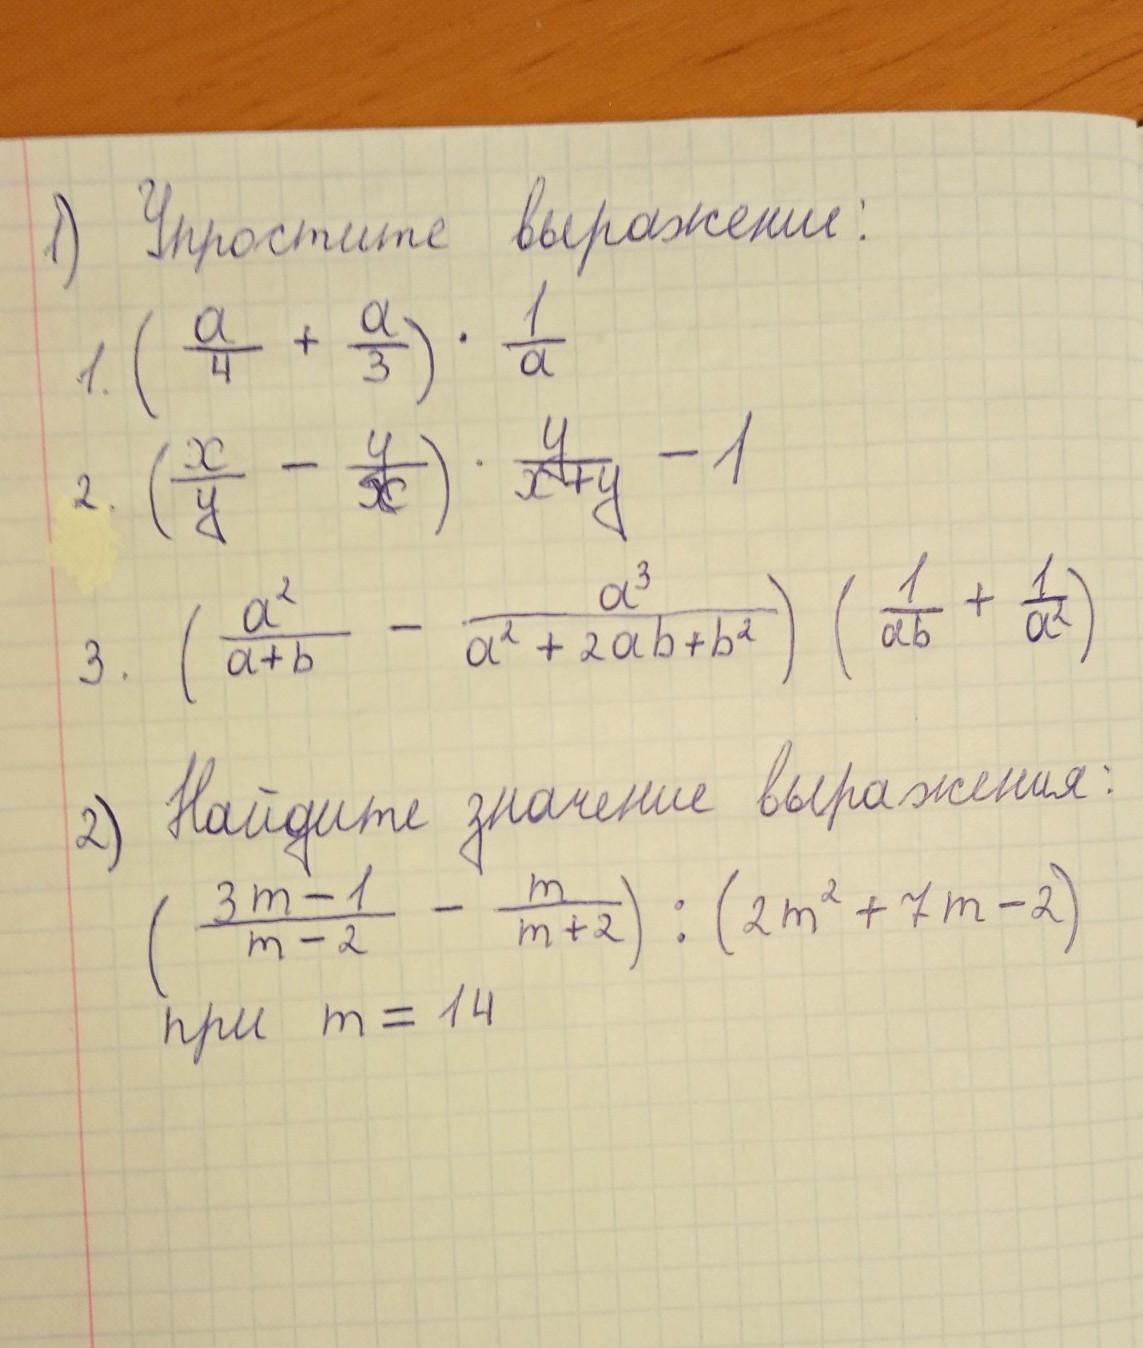 1) Упростите выражение:
1. (a/4 + a/3) · 1/a
2. (x/y - y/x) · y/x+y - 1
3. (a²/a+b - a³/a² + 2ab+b²) (1/ab + 1/a²)
2) Найдите значение выражения:
(3m-1/m-2 - m/m+2) : (2m² + 7m - 2)
при m = 14